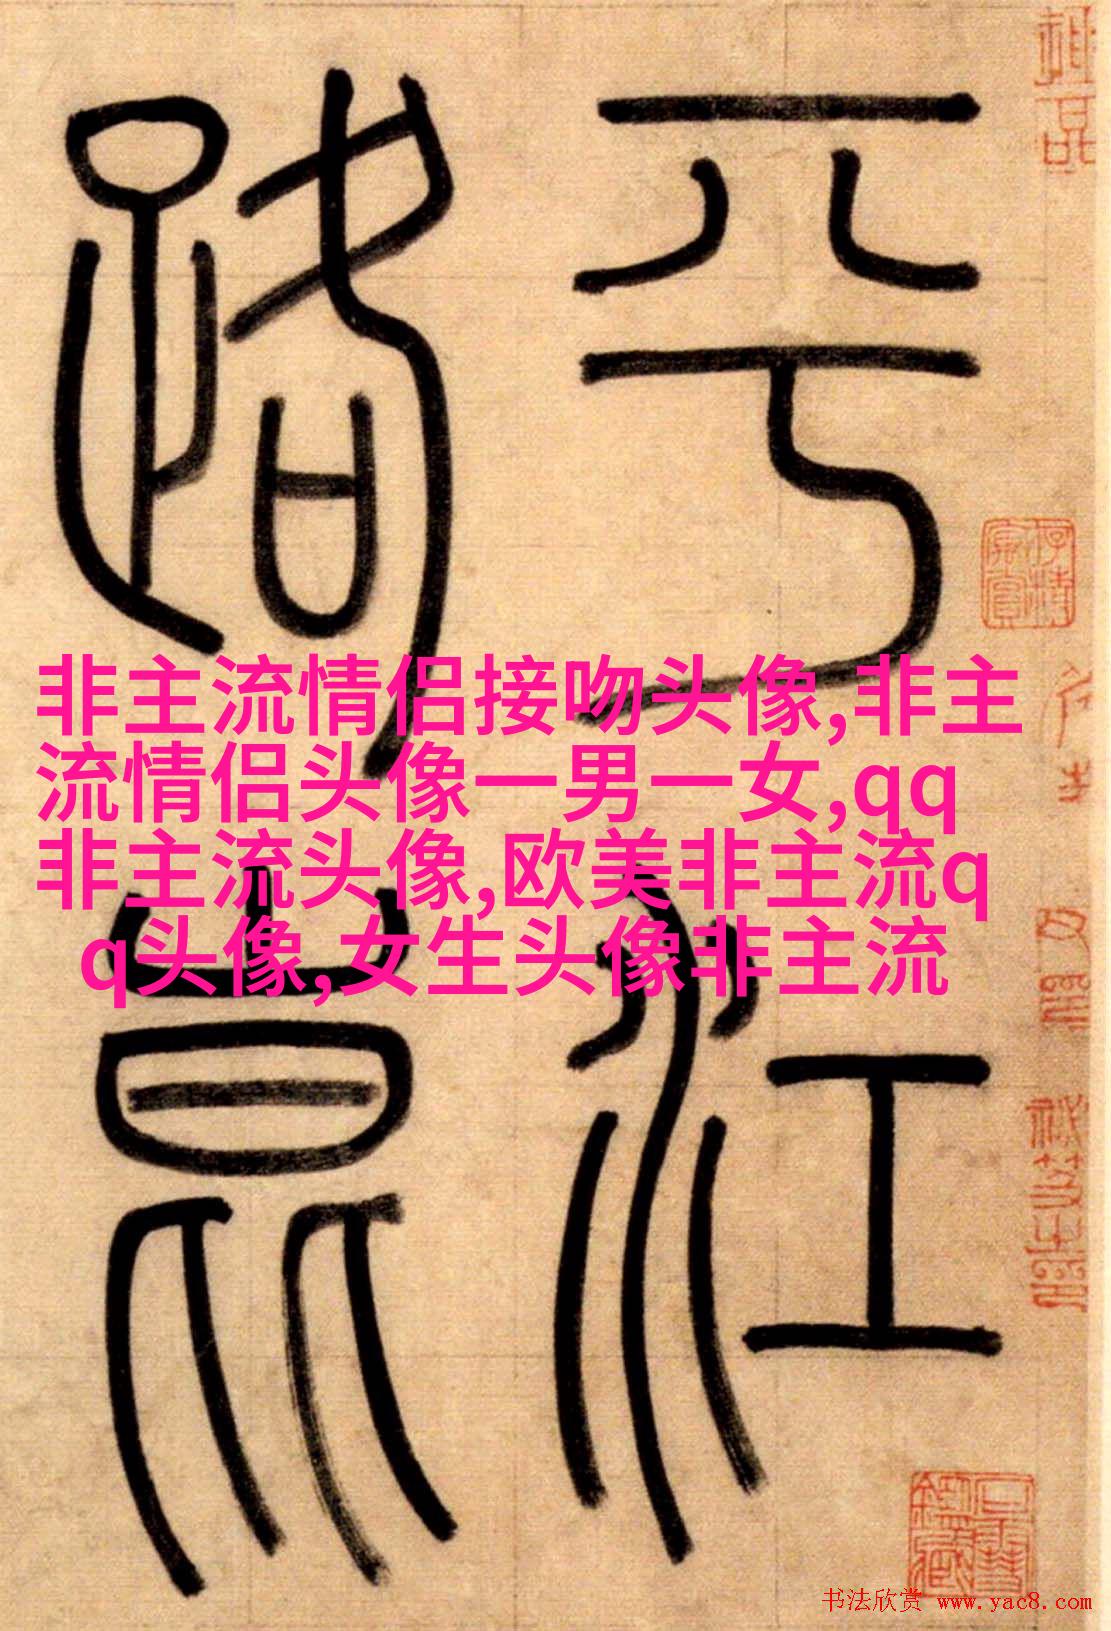 平江
路崑
非主流情侣接吻头像,非主
流情侣头像一男一女,qq
非主流头像,欧美非主流q
q头像,女生头像非主流
书法欣赏 www.yac8.com